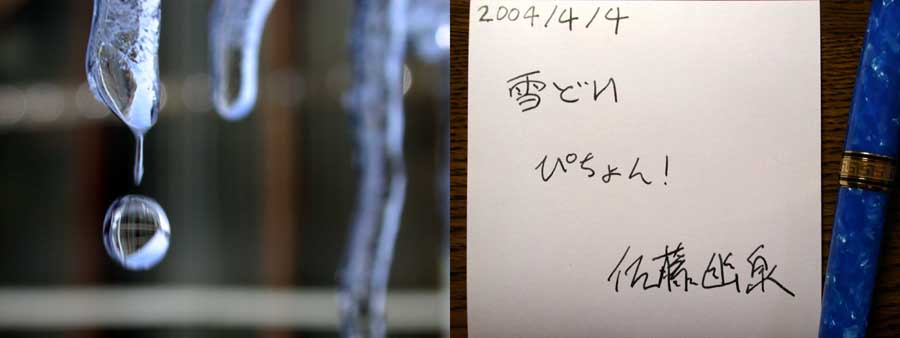 2004/4/4
雪どい
ぴちょん!
佐藤幽泉